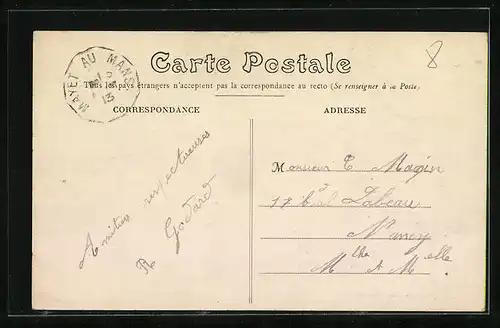 8
MAYET AU MANS
13
Carte Postale
Tous les pays étrangers n'acceptent pas la correspondance au recto (Se renseigner à la Poste)
CORRESPONDANCE
ADRESSE
Amitiés respectueuses
R Godard
Monsieur E. Magin
17 Labeau
Nancy
Mthe & Melle